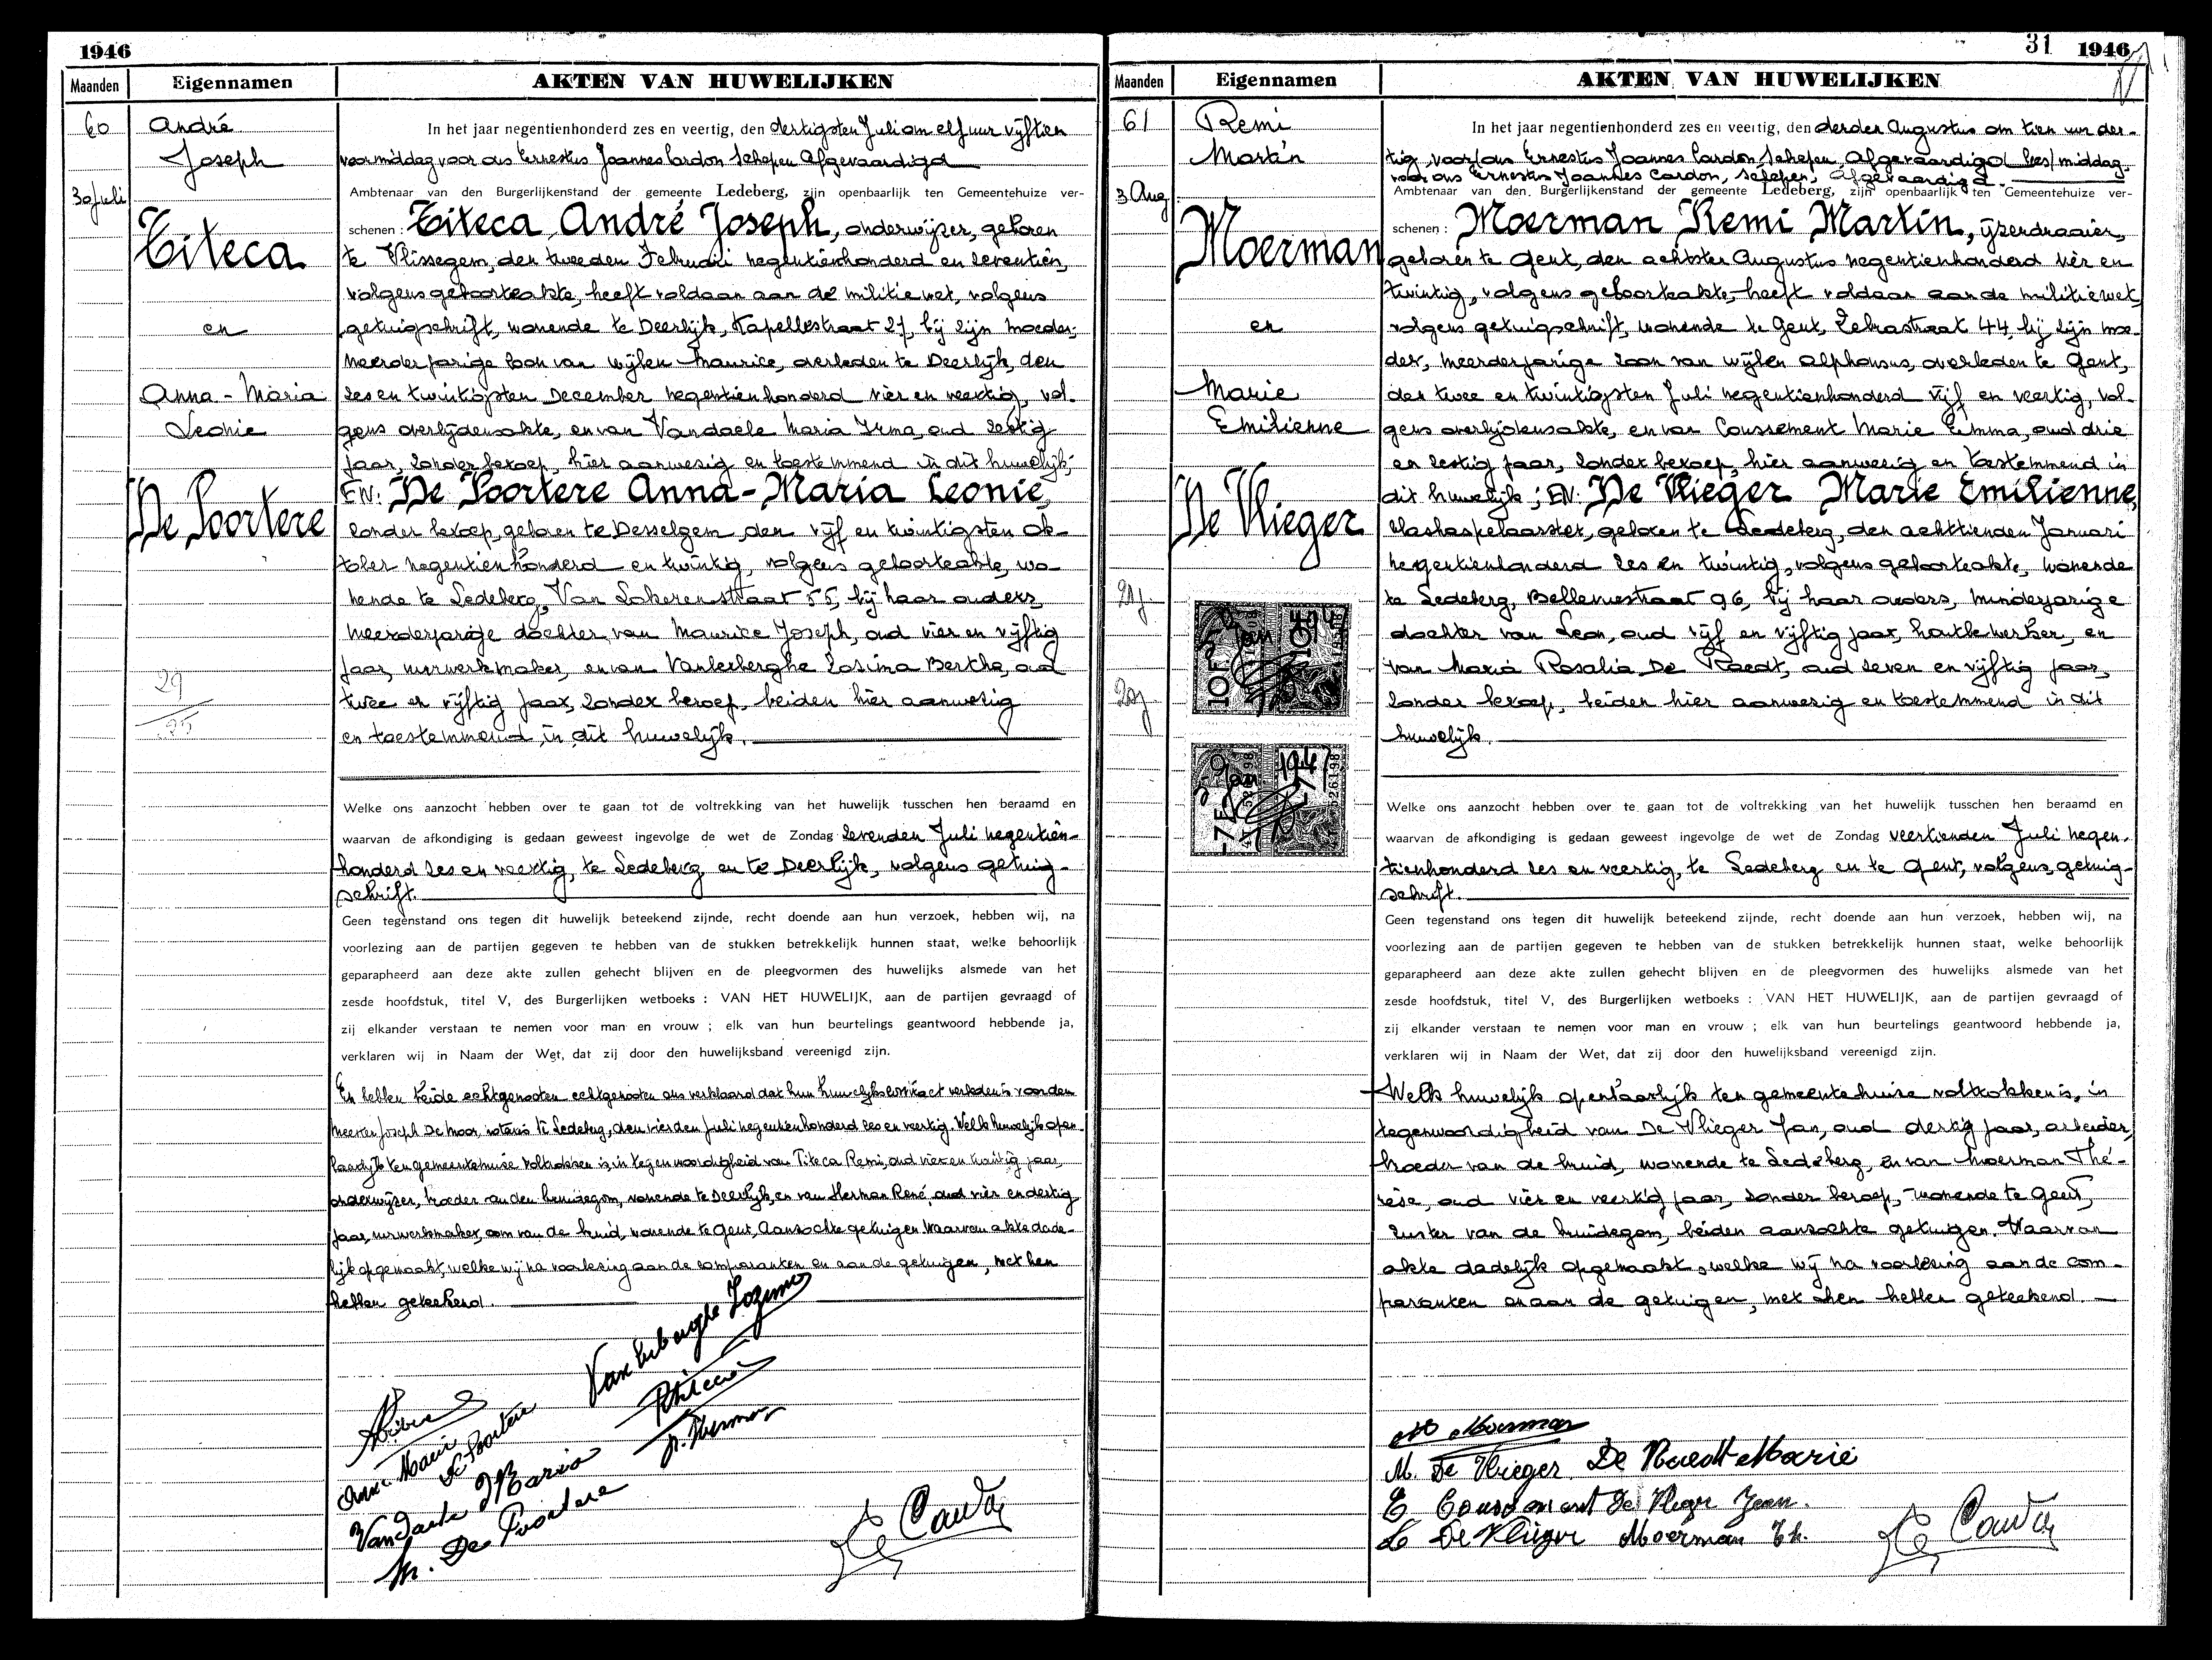 1946
Maanden
Eigennamen
AKTEN VAN HUWELIJKEN
60
André
Joseph
30 Juli
Titeca
en
Anna-Maria
Leonie
De Poortere
29
35
In het jaar negentienhonderd zes en veertig, den dertigsten Juli om elf uur vijftien
voormiddag voor ons Ernestus Joannes Cardon Schepen Afgevaardigd
Ambtenaar van den Burgerlijkenstand der gemeente Ledeberg, zijn openbaarlijk ten Gemeentehuize ver-
schenen: Titeca André Joseph, onderwijzer, geboren
te Vlissegem, den tweeden Februari negentienhonderd en zeventien,
volgens geboorteakte, heeft voldaan aan de militiewet, volgens
getuigschrift, wonende te Deerlijk, Kapellestraat 27, bij zijn moeder;
meerderjarige zoon van wijlen Maurice, overleden te Deerlijk, den
zes en twintigsten December negentienhonderd vier en veertig, vol-
gens overlijdensakte, en van Vandaele Maria Irma, oud zestig
jaar, zonder beroep, hier aanwezig en toestemmend in dit huwelijk;
EN: De Poortere Anna-Maria Leonie,
zonder beroep, geboren te Desselgem, den vijf en twintigsten Ok-
tober negentienhonderd en twintig, volgens geboorteakte, wo-
nende te Ledeberg, Van Lokerenstraat 55, bij haar ouders,
meerderjarige dochter van Maurice Joseph, oud vier en vijftig
jaar, uurwerkmaker, en van Vanlerberghe Zosima Bertha, oud
twee en vijftig jaar, zonder beroep, beiden hier aanwezig
en toestemmend in dit huwelijk.
Welke ons aanzocht hebben over te gaan tot de voltrekking van het huwelijk tusschen hen beraamd en
waarvan de afkondiging is gedaan geweest ingevolge de wet de Zondag zevenden Juli negentien-
honderd zes en veertig, te Ledeberg en te Deerlijk, volgens getuig-
schrift.
Geen tegenstand ons tegen dit huwelijk beteekend zijnde, recht doende aan hun verzoek, hebben wij, na
voorlezing aan de partijen gegeven te hebben van de stukken betrekkelijk hunnen staat, welke behoorlijk
geparapheerd aan deze akte zullen gehecht blijven en de pleegvormen des huwelijks alsmede van het
zesde hoofdstuk, titel V, des Burgerlijken wetboeks : VAN HET HUWELIJK, aan de partijen gevraagd of
zij elkander verstaan te nemen voor man en vrouw ; elk van hun beurtelings geantwoord hebbende ja,
verklaren wij in Naam der Wet, dat zij door den huwelijksband vereenigd zijn.
En hebben beide echtgenooten echtgenooten ons verklaard dat hun huwelijkscontract verleden is voor den
meester Joseph De Moor, notaris te Ledeberg, den vierden Juli negentienhonderd zes en veertig. Welk huwelijk open-
baarlijk ten gemeentehuize voltrokken is, in tegenwoordigheid van Titeca Remi, oud vier en twintig jaar,
onderwijzer, broeder van den bruidegom, wonende te Deerlijk, en van Herman René, oud vier en dertig
jaar, uurwerkmaker, oom van de bruid, wonende te Gent, Aanzochte getuigen. Waarvan akte dade-
lijk opgemaakt, welke wij na voorlezing aan de comparanten en aan de getuigen, met hen
hebben geteekend.
Vanlerberghe Zozima
Anna Maria
De Poortere
Vandaele Maria
R. Herman
M. De Poortere
31 1946
Maanden
Eigennamen
AKTEN VAN HUWELIJKEN
61
Remi
Martin
3 Aug
Moerman
en
Marie
Emilienne
De Vlieger
10F
10F
1947
Jan
7F
526198
1947
In het jaar negentienhonderd zes en veertig, den derden Augustus om tien uur der-
tig, voor/ons Ernestus Joannes Cardon, Schepen, Afgevaardigd lees/middag
voor ons Ernestus Joannes Cardon, Schepen, Afgevaardigd.
Ambtenaar van den Burgerlijkenstand der gemeente Ledeberg, zijn openbaarlijk ten Gemeentehuize ver-
schenen: Moerman Remi Martin, ijzerdraaier,
geboren te Gent, den achtsten Augustus negentienhonderd vier en
twintig, volgens geboorteakte, heeft voldaan aan de militiewet,
volgens getuigschrift, wonende te Gent, Zebrastraat 44, bij zijn moe-
der, meerderjarige zoon van wijlen Alphonsus, overleden te Gent,
den twee en twintigsten Juli negentienhonderd vijf en veertig, vol-
gens overlijdensakte, en van Coussement Marie Emma, oud drie
en zestig jaar, zonder beroep, hier aanwezig en toestemmend in
dit huwelijk; EN: De Vlieger Marie Emilienne,
vlashaspelaarster, geboren te Ledeberg, den achttienden Januari
negentienhonderd zes en twintig, volgens geboorteakte, wonende
te Ledeberg, Bellevuestraat 96, bij haar ouders, minderjarige
dochter van Leon, oud vijf en vijftig jaar, houtbewerker, en
van Maria Rosalia De Raedt, oud zeven en vijftig jaar,
zonder beroep, beiden hier aanwezig en toestemmend in dit
huwelijk.
Welke ons aanzocht hebben over te gaan tot de voltrekking van het huwelijk tusschen hen beraamd en
waarvan de afkondiging is gedaan geweest ingevolge de wet de Zondag veertienden Juli negen-
tienhonderd zes en veertig, te Ledeberg en te Gent, volgens getuig-
schrift.
Geen tegenstand ons tegen dit huwelijk beteekend zijnde, recht doende aan hun verzoek, hebben wij, na
voorlezing aan de partijen gegeven te hebben van de stukken betrekkelijk hunnen staat, welke behoorlijk
geparapheerd aan deze akte zullen gehecht blijven en de pleegvormen des huwelijks alsmede van het
zesde hoofdstuk, titel V, des Burgerlijken wetboeks : VAN HET HUWELIJK, aan de partijen gevraagd of
zij elkander verstaan te nemen voor man en vrouw ; elk van hun beurtelings geantwoord hebbende ja,
verklaren wij in Naam der Wet, dat zij door den huwelijksband vereenigd zijn.
Welk huwelijk openbaarlijk ten gemeentehuize voltrokken is, in
tegenwoordigheid van De Vlieger Jan, oud dertig jaar, arbeider,
broeder van de bruid, wonende te Ledeberg, en van Moerman Thé-
rèse, oud vier en veertig jaar, zonder beroep, wonende te Gent,
zuster van de bruidegom, beiden aanzochte getuigen. Waarvan
akte dadelijk opgemaakt, welke wij na voorlezing aan de com-
paranten en aan de getuigen, met hen hebben geteekend.
Moerman
M. De Vlieger De Raedt Marie
E Coussement De Vlieger Jean.
L De Vlieger Moerman Th.